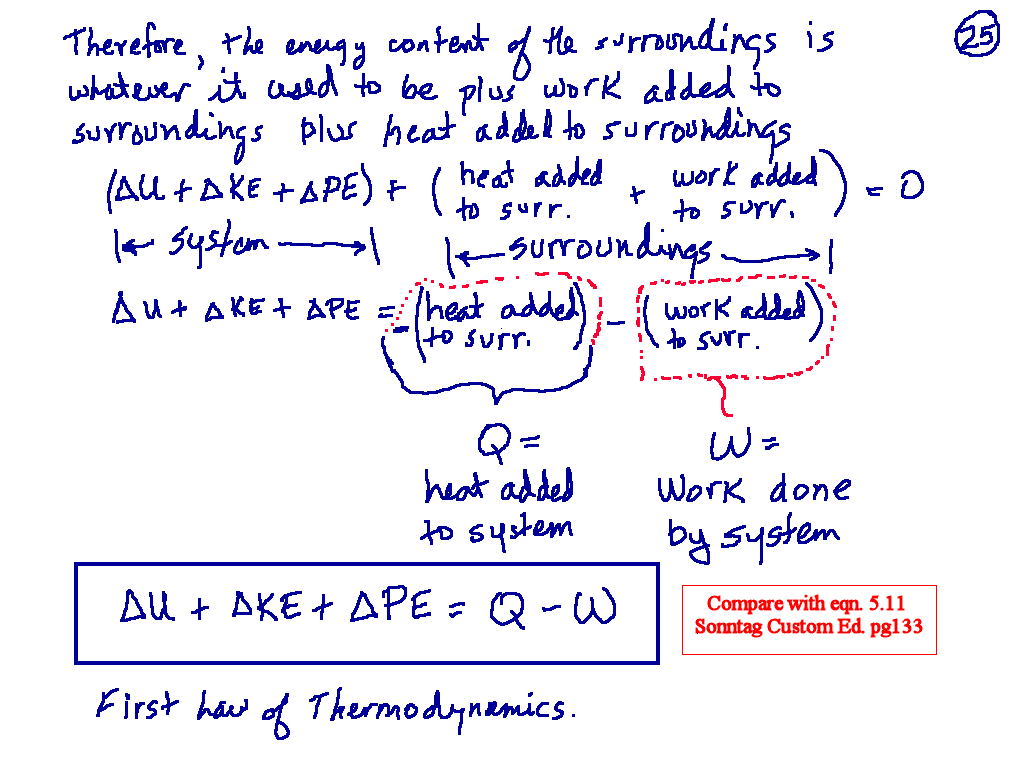 Therefore, the energy content of the surroundings is
25
whatever it used to be plus work added to
surroundings plus heat added to surroundings
(ΔU + ΔKE + ΔPE) + (heat added to surr. + work added to surr.) = 0
|← system →| |← surroundings →|
ΔU + ΔKE + ΔPE = -(heat added to surr.) - (work added to surr.)
Q = W =
heat added Work done
to system by system
ΔU + ΔKE + ΔPE = Q - W
Compare with eqn. 5.11
Sonntag Custom Ed. pg133
First Law of Thermodynamics.